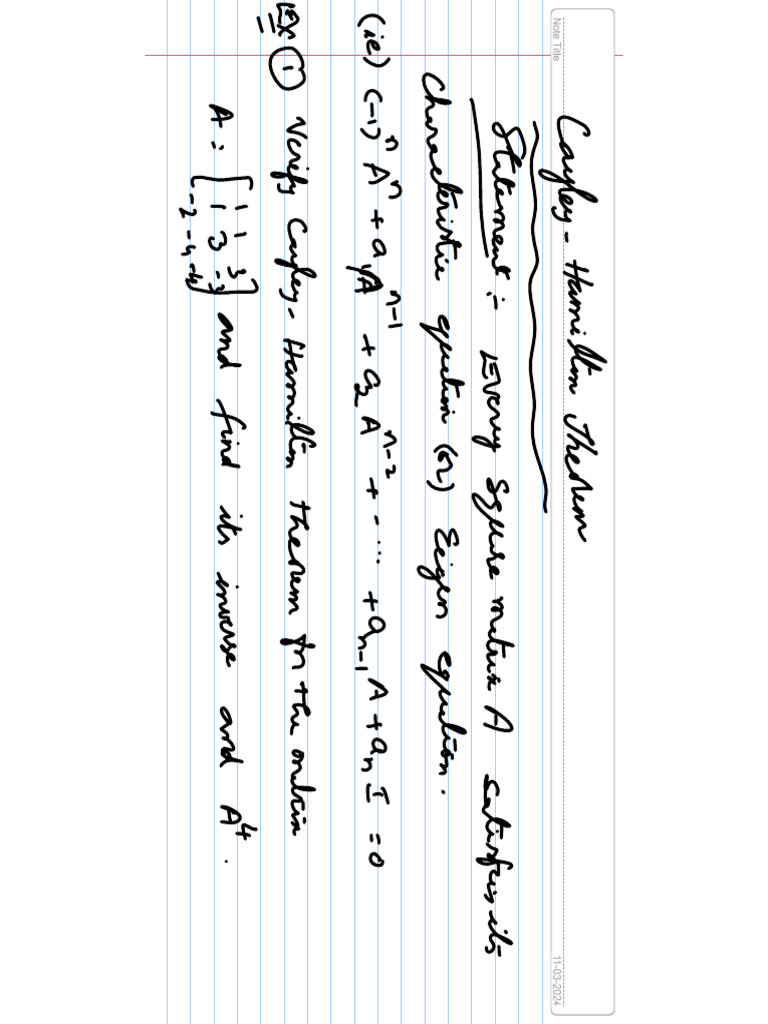 Note Title
11-03-2024
Cayley-Hamilton Theorem
Statement :- Every Square matrix A satisfies its
Characteristic equation (or) Eigen equation.
(ie) (-1)ⁿ Aⁿ + a₁Aⁿ⁻¹ + a₂ Aⁿ⁻² + - ... + aₙ₋₁ A + aₙ I = 0
Ex ① Verify Cayley-Hamilton theorem for the matrix
A = [1 1 3
1 3 -3
-2 -4 -4] and find its inverse and A⁴.